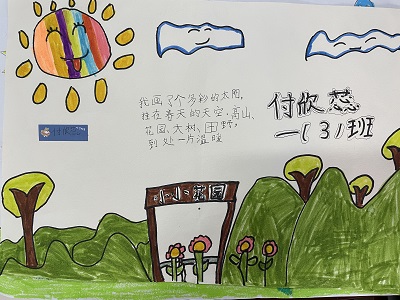 我画了个多彩的太阳,
挂在春天的天空,高山、
花园、大树、田野,
到处一片温暖
付欣蕊
一(3)班
付欣蕊
小小花园